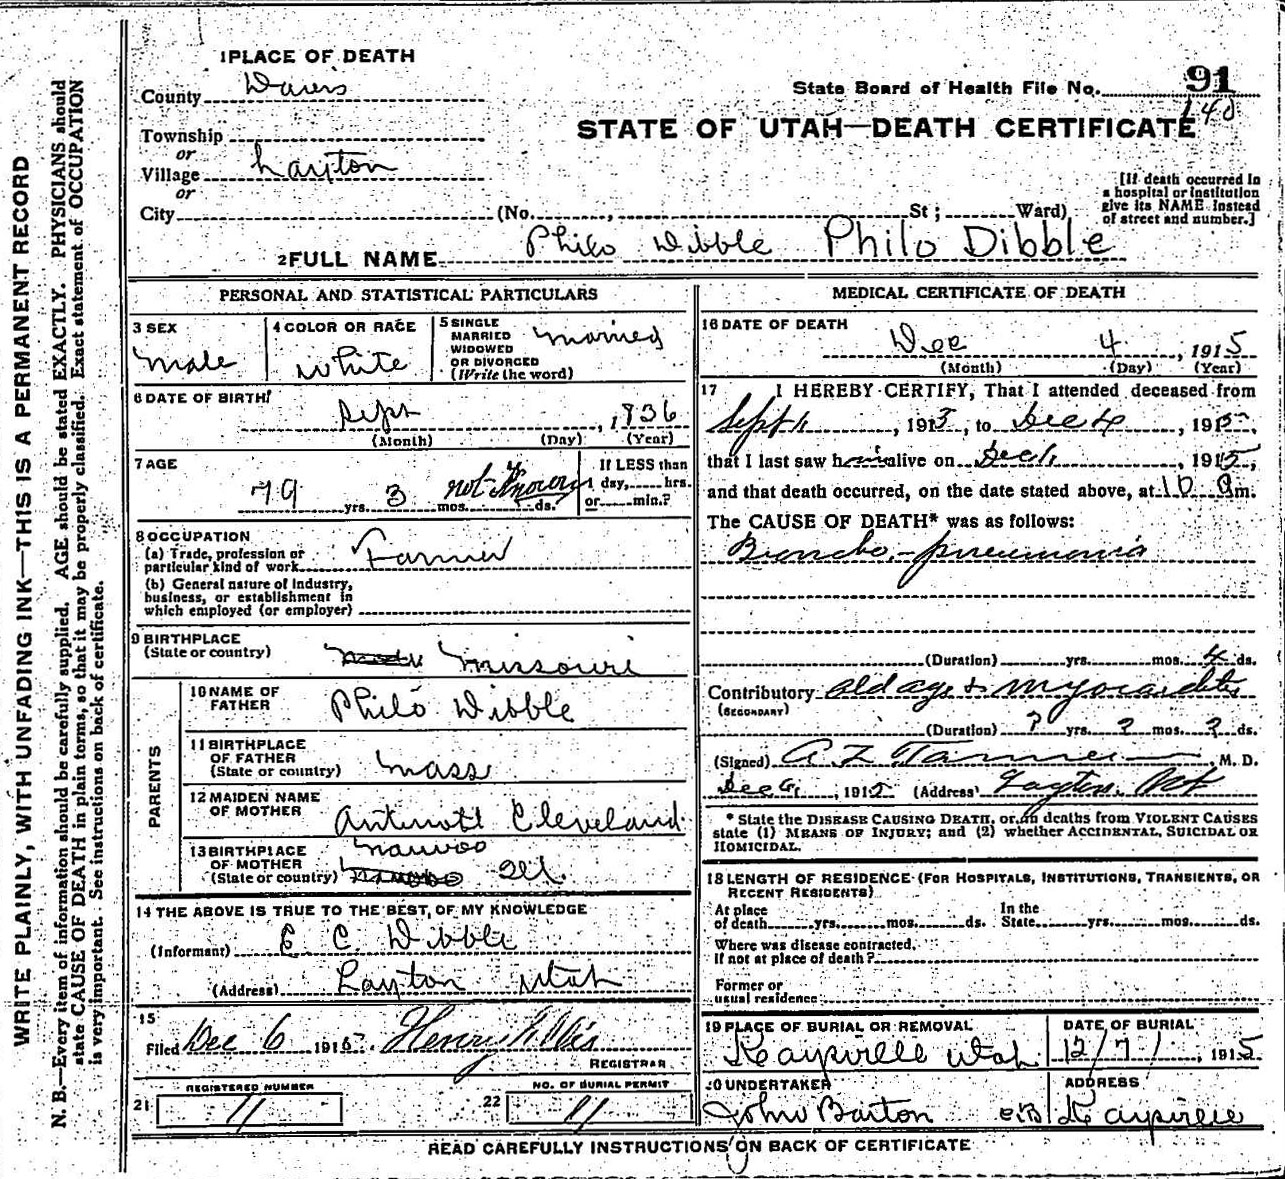 WRITE PLAINLY, WITH UNFADING INK—THIS IS A PERMANENT RECORD
N. B.—Every item of information should be carefully supplied. AGE should be stated EXACTLY. PHYSICIANS should
state CAUSE OF DEATH in plain terms, so that it may be properly classified. Exact statement of OCCUPATION
is very important. See instructions on back of certificate.
1 PLACE OF DEATH
County Davis
Township
or
Village Layton
or
City (No. , St ; Ward)
State Board of Health File No. 91
140
STATE OF UTAH—DEATH CERTIFICATE
[If death occurred in
a hospital or institution
give its NAME instead
of street and number.]
2 FULL NAME Philo Dibble Philo Dibble
PERSONAL AND STATISTICAL PARTICULARS
3 SEX
Male
4 COLOR OR RACE
White
5 SINGLE
MARRIED
WIDOWED
OR DIVORCED
(Write the word)
Married
6 DATE OF BIRTH
Sept , 1836
(Month) (Day) (Year)
7 AGE
79 yrs. 3 mos. not known ds.
If LESS than
1 day, hrs.
or min.?
8 OCCUPATION
(a) Trade, profession or
particular kind of work Farmer
(b) General nature of industry,
business, or establishment in
which employed (or employer)
9 BIRTHPLACE
(State or country) Missouri
PARENTS
10 NAME OF
FATHER Philo Dibble
11 BIRTHPLACE
OF FATHER
(State or country) Mass
12 MAIDEN NAME
OF MOTHER Cleveland
13 BIRTHPLACE
OF MOTHER
(State or country) Nauvoo Ill.
14 THE ABOVE IS TRUE TO THE BEST OF MY KNOWLEDGE
(Informant) E C. Dibble
(Address) Layton Utah
15
Filed Dec 6 191
REGISTRAR
REGISTERED NUMBER
21 11
NO. OF BURIAL PERMIT
22 11
MEDICAL CERTIFICATE OF DEATH
16 DATE OF DEATH
Dec 4 , 1915
(Month) (Day) (Year)
17 I HEREBY CERTIFY, That I attended deceased from
Sept , 1913, to Dec 4 , 1915,
that I last saw him alive on Dec , 1915,
and that death occurred, on the date stated above, at 10 m.
The CAUSE OF DEATH* was as follows:
Broncho-pneumonia
(Duration) yrs. mos. 4 ds.
Contributory old age + myocarditis
(SECONDARY)
(Duration) ? yrs ? mos. ? ds.
(Signed) A Z Tanner , M. D.
Dec 6, 1915 (Address) Layton
* State the DISEASE CAUSING DEATH, or, in deaths from VIOLENT CAUSES
state (1) MEANS OF INJURY; and (2) whether ACCIDENTAL, SUICIDAL OR
HOMICIDAL.
18 LENGTH OF RESIDENCE (FOR HOSPITALS, INSTITUTIONS, TRANSIENTS, OR
RECENT RESIDENTS)
At place
of death yrs. mos. ds. In the
State yrs. mos. ds.
Where was disease contracted,
If not at place of death?
Former or
usual residence
19 PLACE OF BURIAL OR REMOVAL
Kaysville Utah
DATE OF BURIAL
12/7/ , 1915
20 UNDERTAKER
John Barton
ADDRESS
Kaysville
READ CAREFULLY INSTRUCTIONS ON BACK OF CERTIFICATE